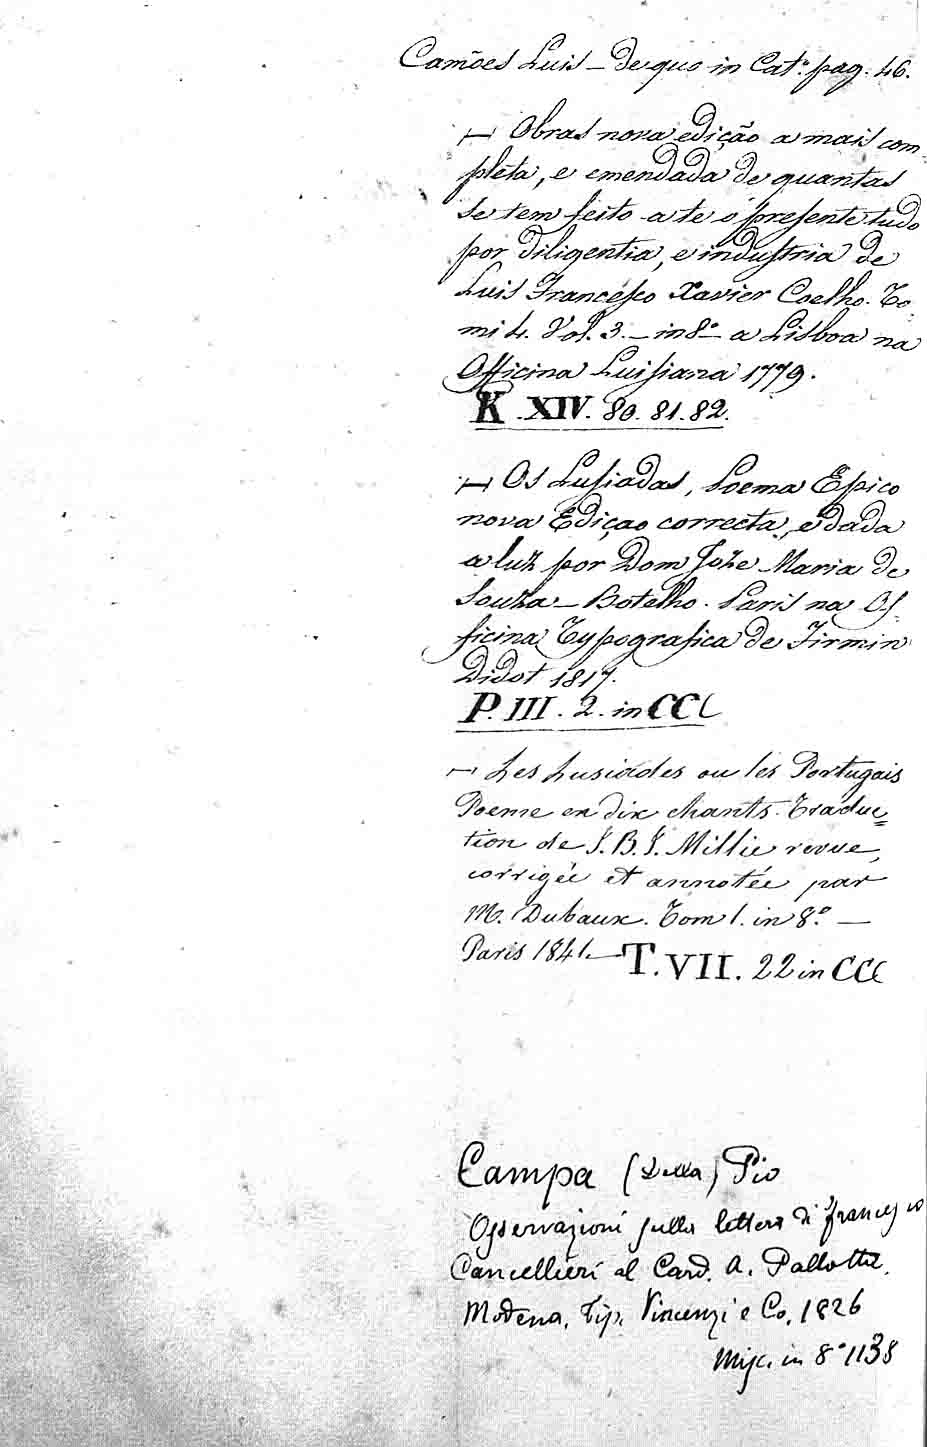 Camões Luis – De quo in Cat.º pag. 46.
— Obras nova edição a mais com-
pleta, e emendada de quantas
se tem feito a te o presente tudo
por diligentia, e industria de
Luis Francesco Xavier Coelho. To-
mi 4. Vol. 3. – in 8º – a Lisboa na
Officina Luisiana 1779.
K. XIV. 80. 81. 82.
— Os Lusiadas, Poema Epico
nova Ediçao correcta, e dada
a luz por Dom Joze Maria de
Souza – Botelho. Paris na Of-
ficina Typografica de Firmin
Didot 1817.
P. III. 2. in CCC
— Les Lusiades ou les Portugais
Poeme en dix chants. Traduc=
tion de J. B. J. Millie revue,
corrigée et annotée par
M. Dubaux. Tom 1. in 8.º —
Paris 1841. — T. VII. 22 in CCC
Campa (Della) Pio
Osservazioni sulla lettera di Francesco
Cancellieri al Card. A. Pallotta.
Modena, Tip. Vincenzi e Co, 1826
Misc. in 8º 1138